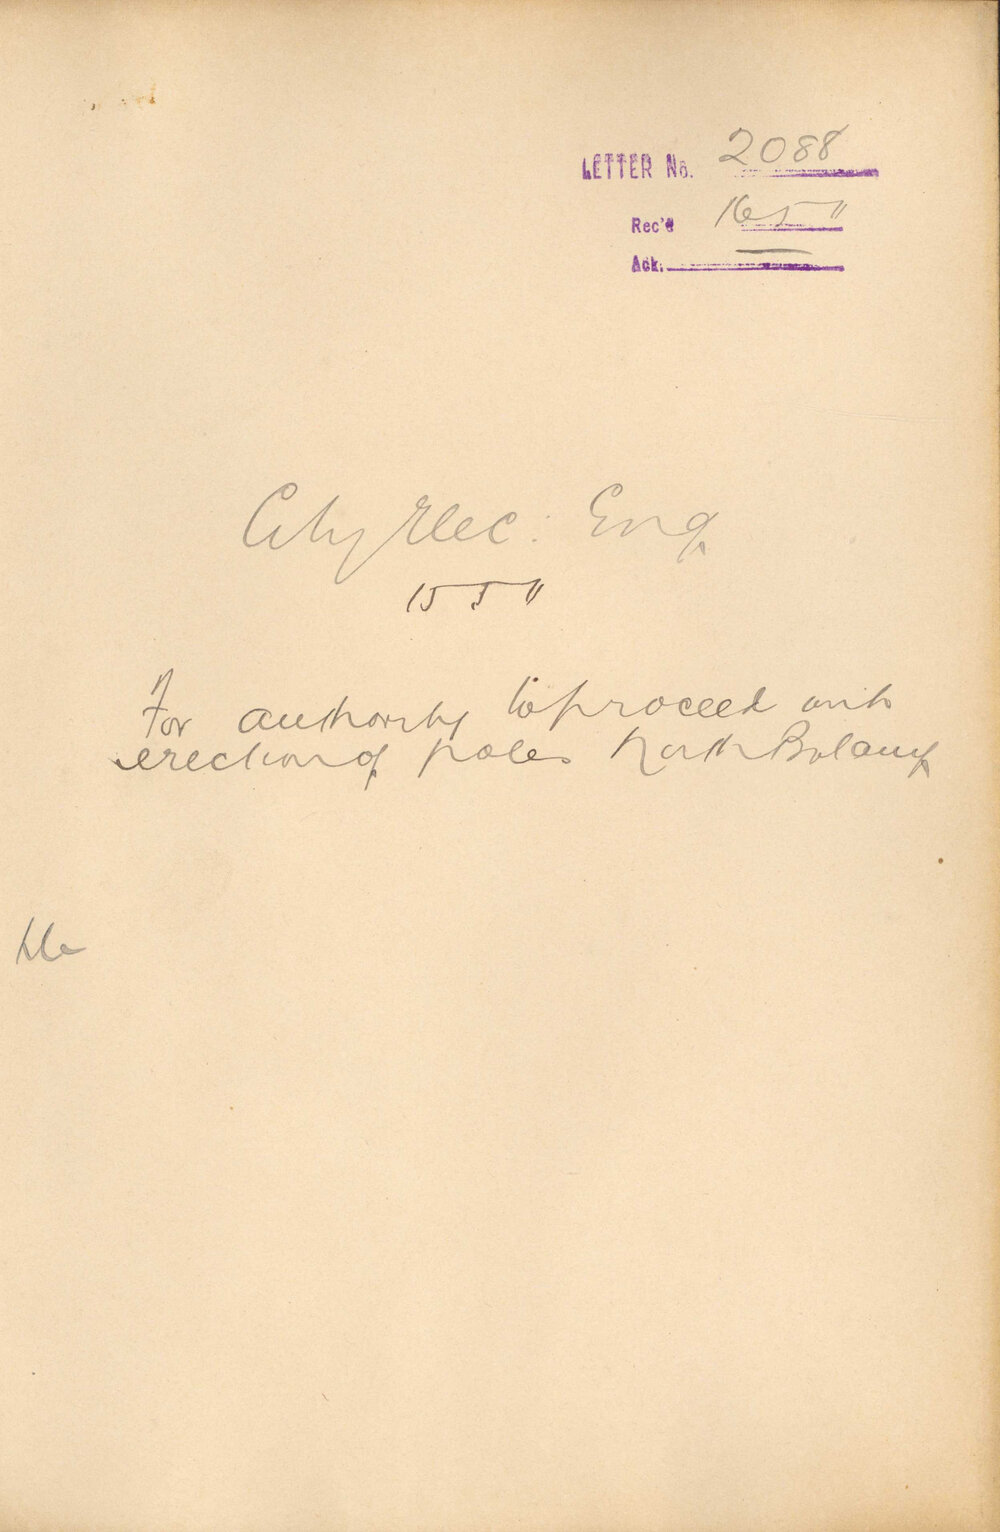 LETTER No. 2088
Rec'd 16 5 11
Ack.
City Elec: Eng.
15 5 11
For authority to proceed with
erection of poles North Botany